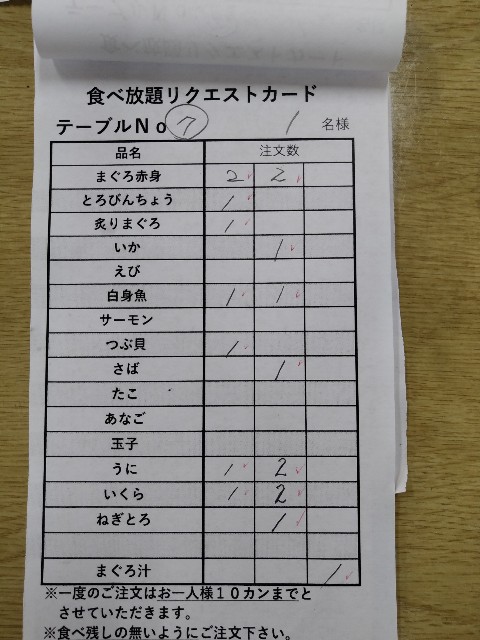 食べ放題リクエストカード
テーブルNo 7 1 名様
品名 注文数
まぐろ赤身 2 2
とろびんちょう 1
炙りまぐろ 1
いか 1
えび
白身魚 1 1
サーモン
つぶ貝 1
さば 1
たこ
あなご
玉子
うに 1 2
いくら 1 2
ねぎとろ 1
まぐろ汁 1
※一度のご注文はお一人様10カンまでと
させていただきます。
※食べ残しの無いようにご注文下さい。